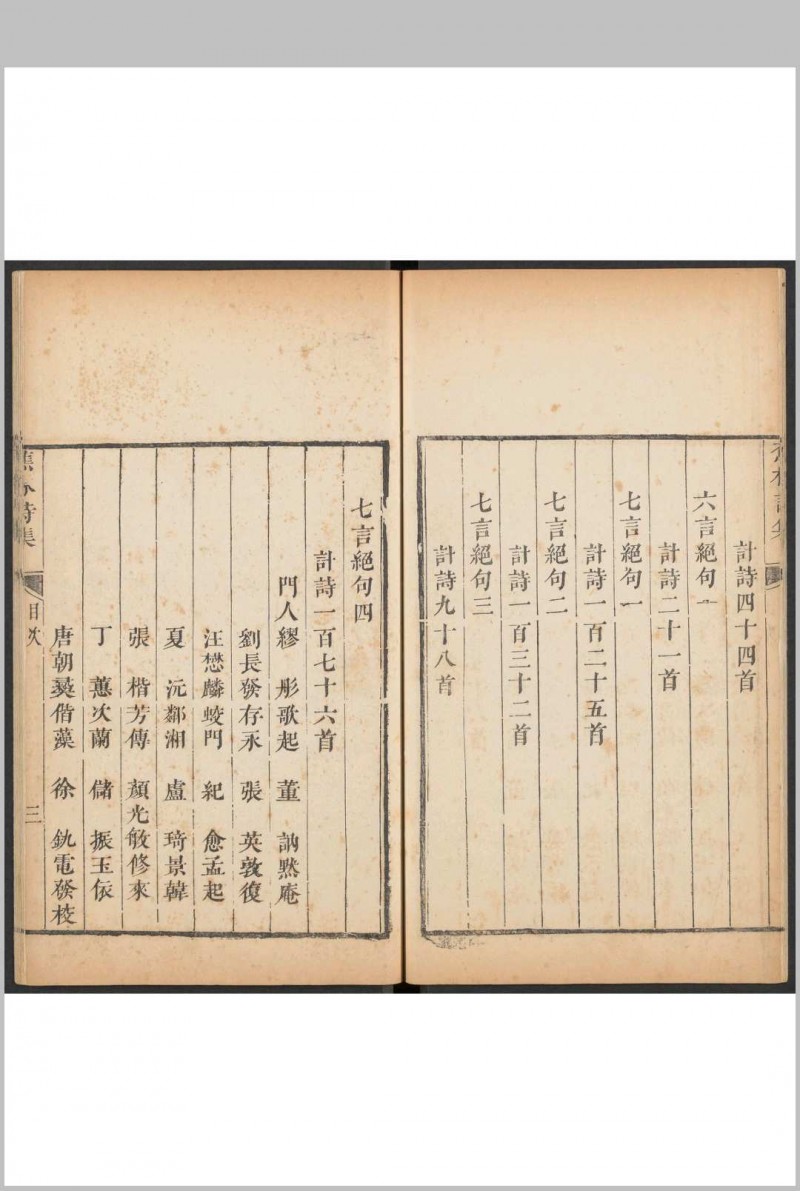 計詩四十四首
六言絕句一
計詩二十一首
七言絕句一
計詩一百二十五首
七言絕句二
計詩一百三十二首
七言絕句三
計詩九十八首
七言絕句四
計詩一百七十六首
門人繆 彤歌起 董 訥黙庵
劉長發存永 張 英敦復
汪懋麟蛟門 紀 愈孟起
夏 沅鄰湘 盧 琦景韓
張 楷芳傳 顏光敏修來
丁 蕙次蘭 儲 振玉依
唐朝彝偕藻 徐 釚電發校
蕉林詩集 目次 三